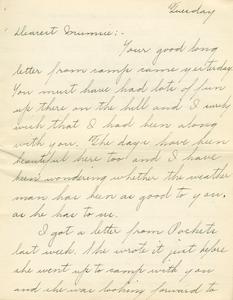 Tuesday
Dearest Mumsie:-
Your good long
letter from camp came yesterday.
You must have had lots of fun
up there on the hill and I surely
wish that I had been along
with you. The days have been
beautiful here too and I have
been wondering whether the weather
man has been as good to you,
as he has to us.
I got a letter from
last week. She wrote it just before
she went up to camp with you
and she was looking forward to